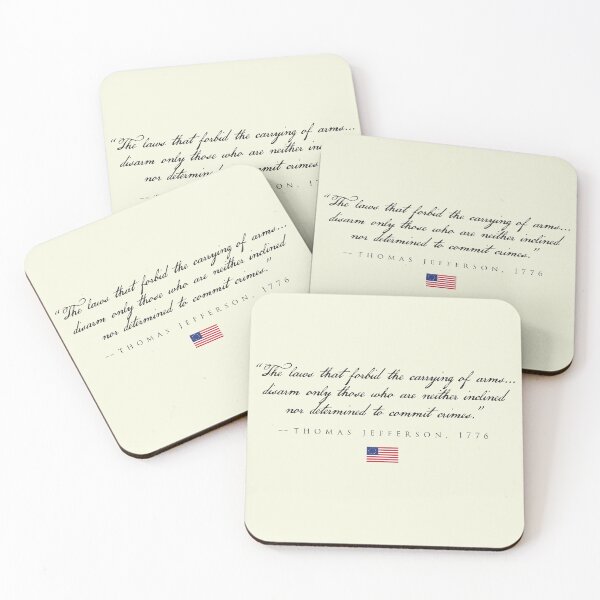 “The laws that forbid the carrying of arms...
disarm only those who are neither inclined
nor determined to commit crimes.”
-- THOMAS JEFFERSON, 1776
“The laws that forbid the carrying of arms...
disarm only those who are neither inclined
nor determined to commit crimes.”
-- THOMAS JEFFERSON, 1776
“The laws that forbid the carrying of arms...
disarm only those who are neither inclined
nor determined to commit crimes.”
-- THOMAS JEFFERSON, 1776
“The laws that forbid the carrying of arms...
disarm only those who are neither inclined
nor determined to commit crimes.”
-- THOMAS JEFFERSON, 1776